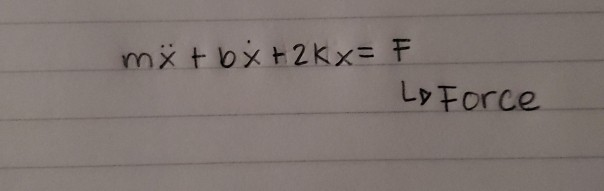 mẍ + bẋ + 2Kx = F
↳ Force